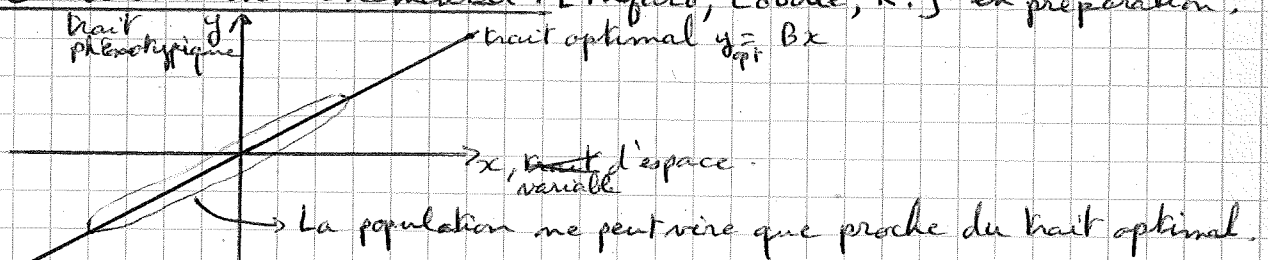 en préparation.
trait y
phénotypique
trait optimal y_opt = Bx
x, variable d'espace.
La population ne peut vivre que proche du trait optimal.